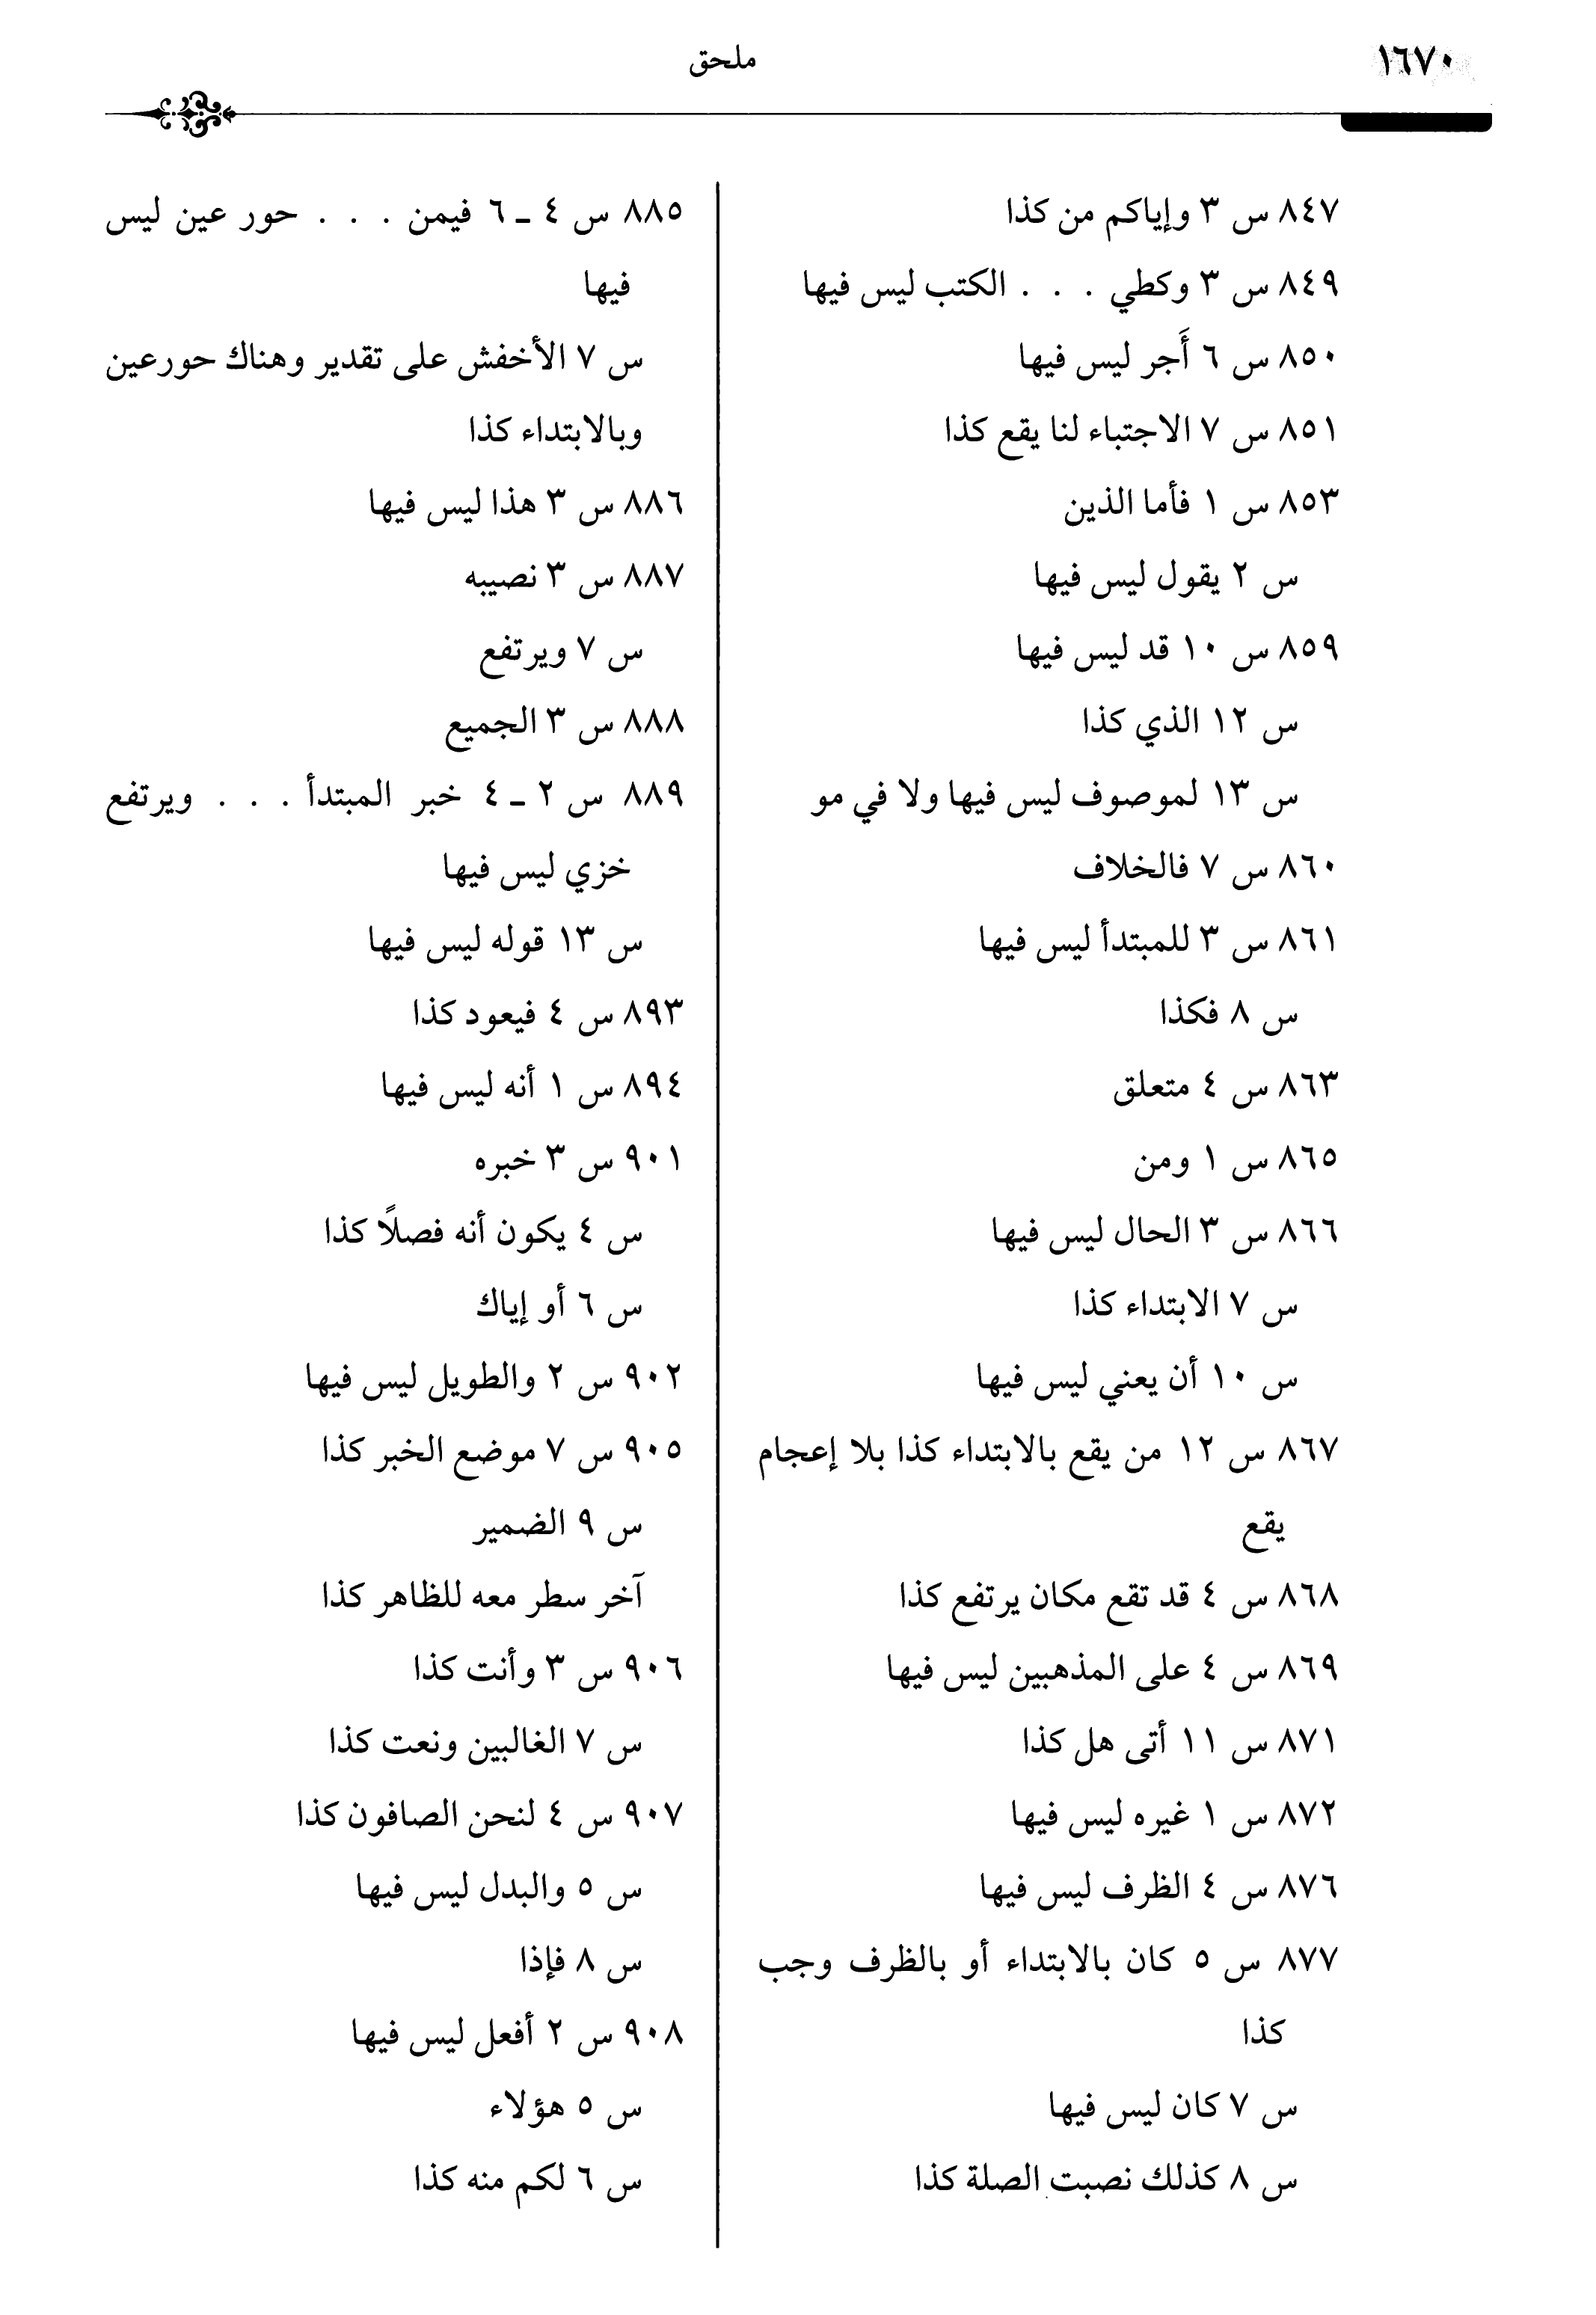 ١٦٧٠
ملحق
٨٤٧ س ٣ وإياكم من كذا
٨٤٩ س ٣ وكطي . . . الكتب ليس فيها
٨٥٠ س ٦ أَجر ليس فيها
٨٥١ س ٧ الاجتباء لنا يقع كذا
٨٥٣ س ١ فأما الذين
س ٢ يقول ليس فيها
٨٥٩ س ١٠ قد ليس فيها
س ١٢ الذي كذا
س ١٣ لموصوف ليس فيها ولا في مو
٨٦٠ س ٧ فالخلاف
٨٦١ س ٣ للمبتدأ ليس فيها
س ٨ فكذا
٨٦٣ س ٤ متعلق
٨٦٥ س ١ ومن
٨٦٦ س ٣ الحال ليس فيها
س ٧ الابتداء كذا
س ١٠ أن يعني ليس فيها
٨٦٧ س ١٢ من يقع بالابتداء كذا بلا إعجام
يقع
٨٦٨ س ٤ قد تقع مكان يرتفع كذا
٨٦٩ س ٤ على المذهبين ليس فيها
٨٧١ س ١١ أتى هل كذا
٨٧٢ س ١ غيره ليس فيها
٨٧٦ س ٤ الظرف ليس فيها
٨٧٧ س ٥ كان بالابتداء أو بالظرف وجب
كذا
س ٧ كان ليس فيها
س ٨ كذلك نصبت الصلة كذا
٨٨٥ س ٤ ـ ٦ فيمن . . . حور عين ليس
فيها
س ٧ الأخفش على تقدير وهناك حورعين
وبالابتداء كذا
٨٨٦ س ٣ هذا ليس فيها
٨٨٧ س ٣ نصيبه
س ٧ ويرتفع
٨٨٨ س ٣ الجميع
٨٨٩ س ٢ ـ ٤ خبر المبتدأ . . . ويرتفع
خزي ليس فيها
س ١٣ قوله ليس فيها
٨٩٣ س ٤ فيعود كذا
٨٩٤ س ١ أنه ليس فيها
٩٠١ س ٣ خبره
س ٤ يكون أنه فصلًا كذا
س ٦ أو إياك
٩٠٢ س ٢ والطويل ليس فيها
٩٠٥ س ٧ موضع الخبر كذا
س ٩ الضمير
آخر سطر معه للظاهر كذا
٩٠٦ س ٣ وأنت كذا
س ٧ الغالبين ونعت كذا
٩٠٧ س ٤ لنحن الصافون كذا
س ٥ والبدل ليس فيها
س ٨ فإذا
٩٠٨ س ٢ أفعل ليس فيها
س ٥ هؤلاء
س ٦ لكم منه كذا